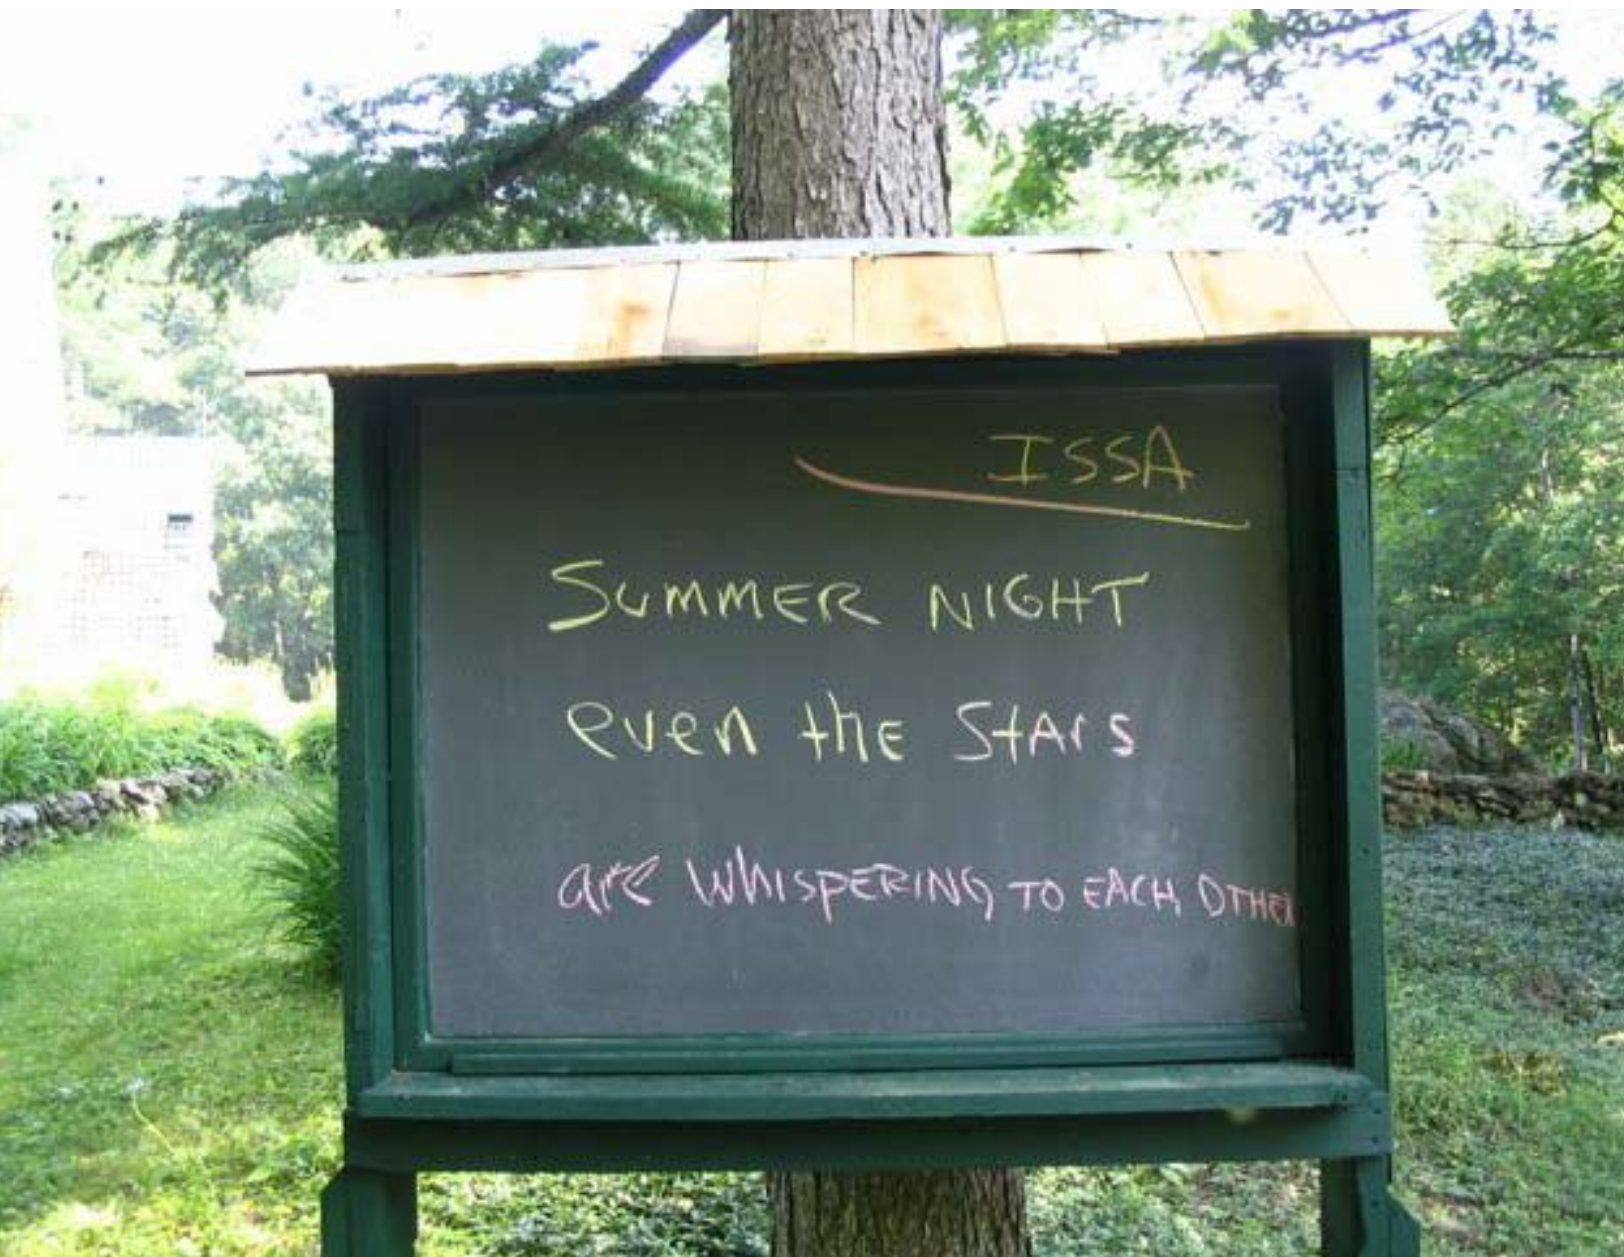 ISSA
SUMMER NIGHT
even the StArs
are WhISPERING TO EACH OTHER